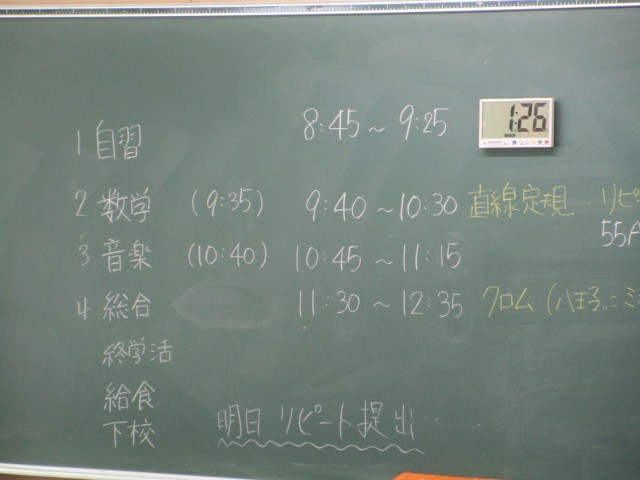 1 自習 8:45 ~ 9:25
1:26
2 数学 (9:35) 9:40 ~ 10:30 直線定規 . リピ
55
3 音楽 (10:40) 10:45 ~ 11:15
4 総合 11:30 ~ 12:35 クロム (八王子
終学活
給食
下校
明日 リピート提出